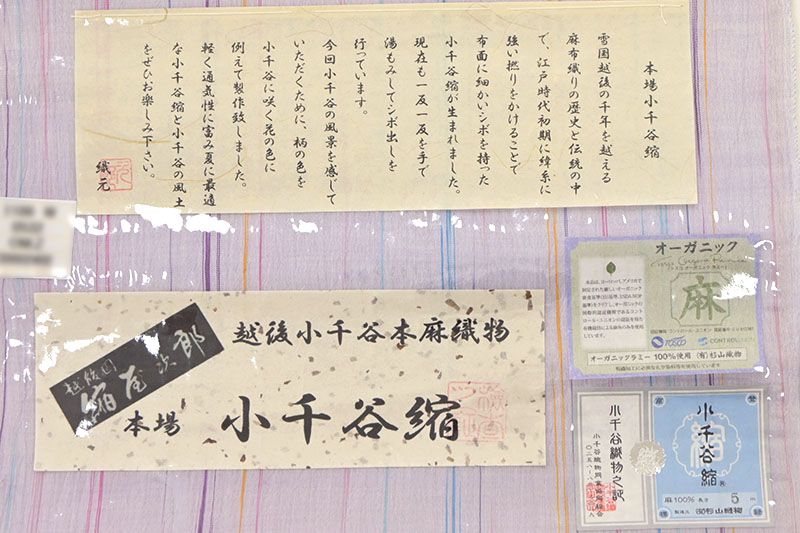 本場小千谷縮
雪国越後の千年を越える
麻布織りの歴史と伝統の中
で、江戸時代初期に緯糸に
強い撚りをかけることで
布面に細かいシボを持った
小千谷縮が生まれました。
現在も一反一反を手で
湯もみしてシボ出しを
行っています。
今回小千谷の風景を感じて
いただくために、柄の色を
小千谷に咲く花の色に
例えて製作致しました。
軽く通気性に富み夏に最適
な小千谷縮と小千谷の風土
をぜひお楽しみ下さい。
織元
越後国
縮屋次郎
越後小千谷本麻織物
本場
小千谷縮
オーガニック
麻
TOSCO
CONTROL
オーガニックラミー 100%使用 (有)杉山織物
小千谷織物之証
小千谷織物同業協同組合
小千谷縮
麻100% 長さ 5m
製造元 (有)杉山織物